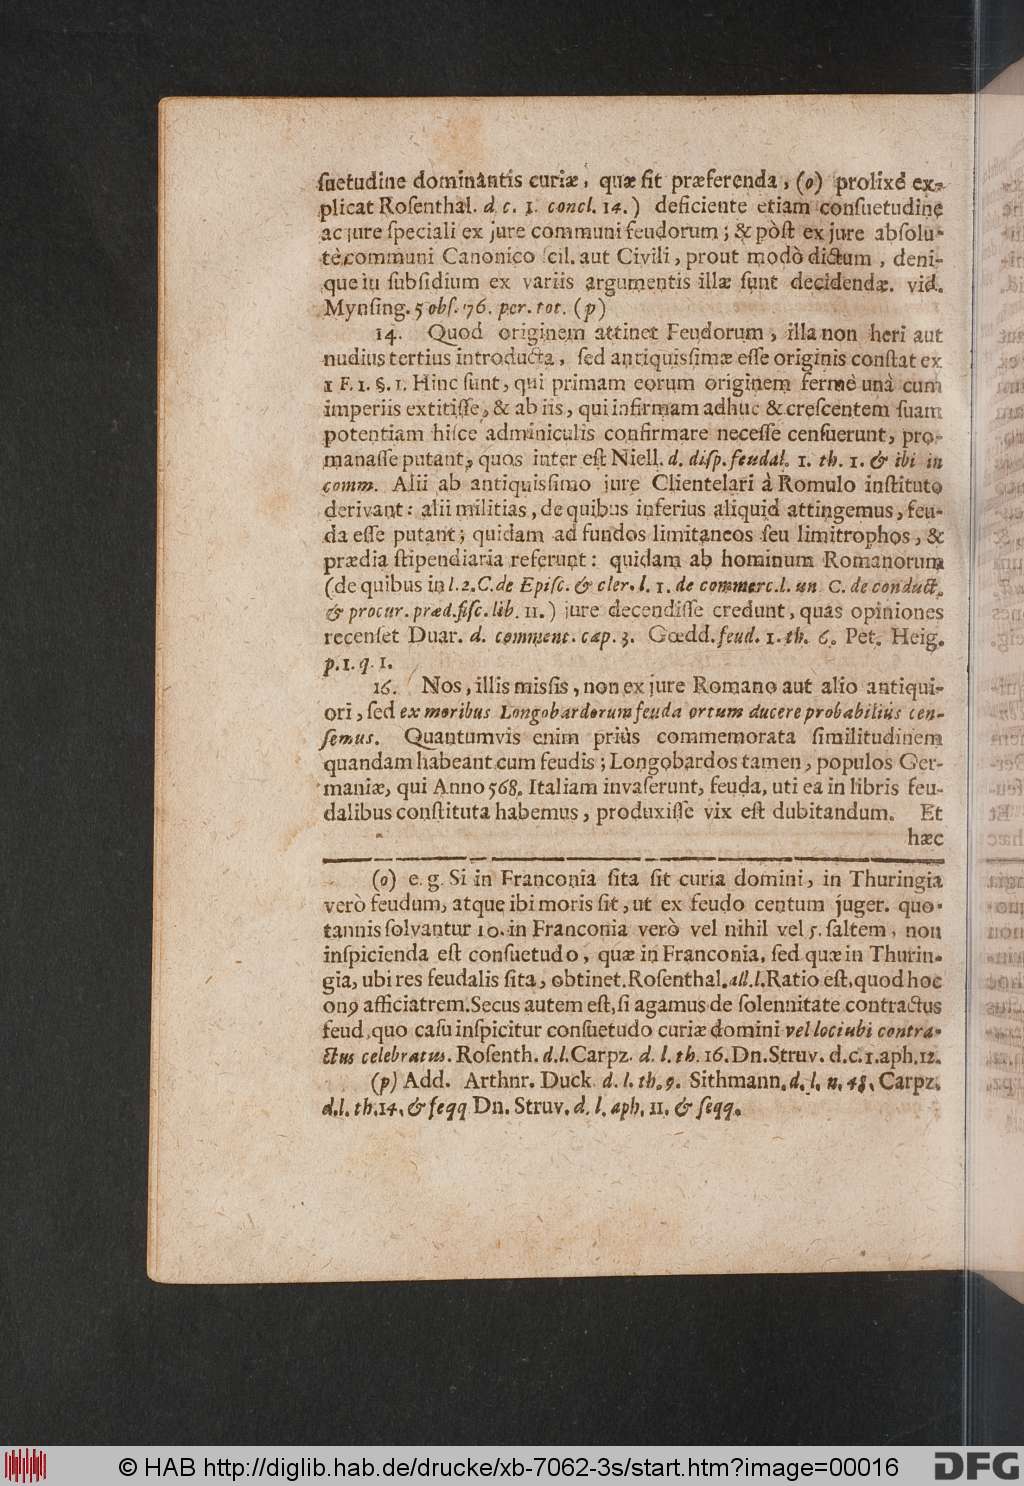 ſuetudine dominantis curiæ, quæ ſit præferenda, (o) prolixè ex-
plicat Roſenthal. d. c. 1. concl. 14.) deficiente etiam conſuetudine
ac jure ſpeciali ex jure communi feudorum; & pòſt ex jure abſolu-
tè communi Canonico ſcil. aut Civili, prout modò dictum, deni-
que in ſubſidium ex variis argumentis illæ ſunt decidendæ. vid.
Mynſing. 5 obſ. 76. per. tot. (p)
14. Quod originem attinet Feudorum, illa non heri aut
nudius tertius introducta, ſed antiquisſimæ eſſe originis conſtat ex
1 F. 1. §. 1. Hinc ſunt, qui primam eorum originem fermè unà cum
imperiis extitiſſe, & ab iis, qui infirmam adhuc & creſcentem ſuam
potentiam hiſce adminiculis confirmare neceſſe cenſuerunt, pro-
manaſſe putant, quos inter eſt Niell. d. diſp. feudal. 1. th. 1. & ibi in
comm. Alii ab antiquisſimo jure Clientelari à Romulo inſtituto
derivant: alii militias, de quibus inferius aliquid attingemus, feu-
da eſſe putant; quidam ad fundos limitaneos ſeu limitrophos, &
prædia ſtipendiaria referunt: quidam ab hominum Romanorum
(de quibus in l. 2. C. de Epiſc. & cler. l. 1. de commerc. l. un C. de conduct.
& procur. præd. fiſc. lib. 11.) jure decendiſſe credunt, quas opiniones
recenſet Duar. d. comment. cap. 3. Gœdd. feud. 1. th. 6. Pet. Heig.
p. 1. q. 1.
16. Nos, illis misſis, non ex jure Romano aut alio antiqui-
ori, ſed ex moribus Longobardorum feuda ortum ducere probabiliùs cen-
ſemus. Quantumvis enim priùs commemorata ſimilitudinem
quandam habeant cum feudis; Longobardos tamen, populos Ger-
maniæ, qui Anno 568. Italiam invaſerunt, feuda, uti ea in libris feu-
dalibus conſtituta habemus, produxiſſe vix eſt dubitandum. Et
hæc
(o) e. g. Si in Franconia ſita ſit curia domini, in Thuringia
verò feudum, atque ibi moris ſit, ut ex feudo centum juger. quo-
tannis ſolvantur 10. in Franconia verò vel nihil vel 5. ſaltem, non
inſpicienda eſt conſuetudo, quæ in Franconia, ſed quæ in Thurin-
gia, ubi res feudalis ſita, obtinet. Roſenthal. all. l. Ratio eſt, quod hoc
onꝰ afficiat rem. Secus autem eſt, ſi agamus de ſolennitate contractus
feud. quo caſu inſpicitur conſuetudo curiæ domini vel loci ubi contra-
ctus celebratus. Roſenth. d. l. Carpz. d. l. th. 16. Dn. Struv. d. c. 1. aph. 12.
(p) Add. Arthur. Duck d. l. th. 9. Sithmann. d. l. n. 48. Carpz.
d. l. th. 14. & ſeqq Dn. Struv. d. l. aph. 11. & ſeqq.
© HAB http://diglib.hab.de/drucke/xb-7062-3s/start.htm?image=00016
DFG